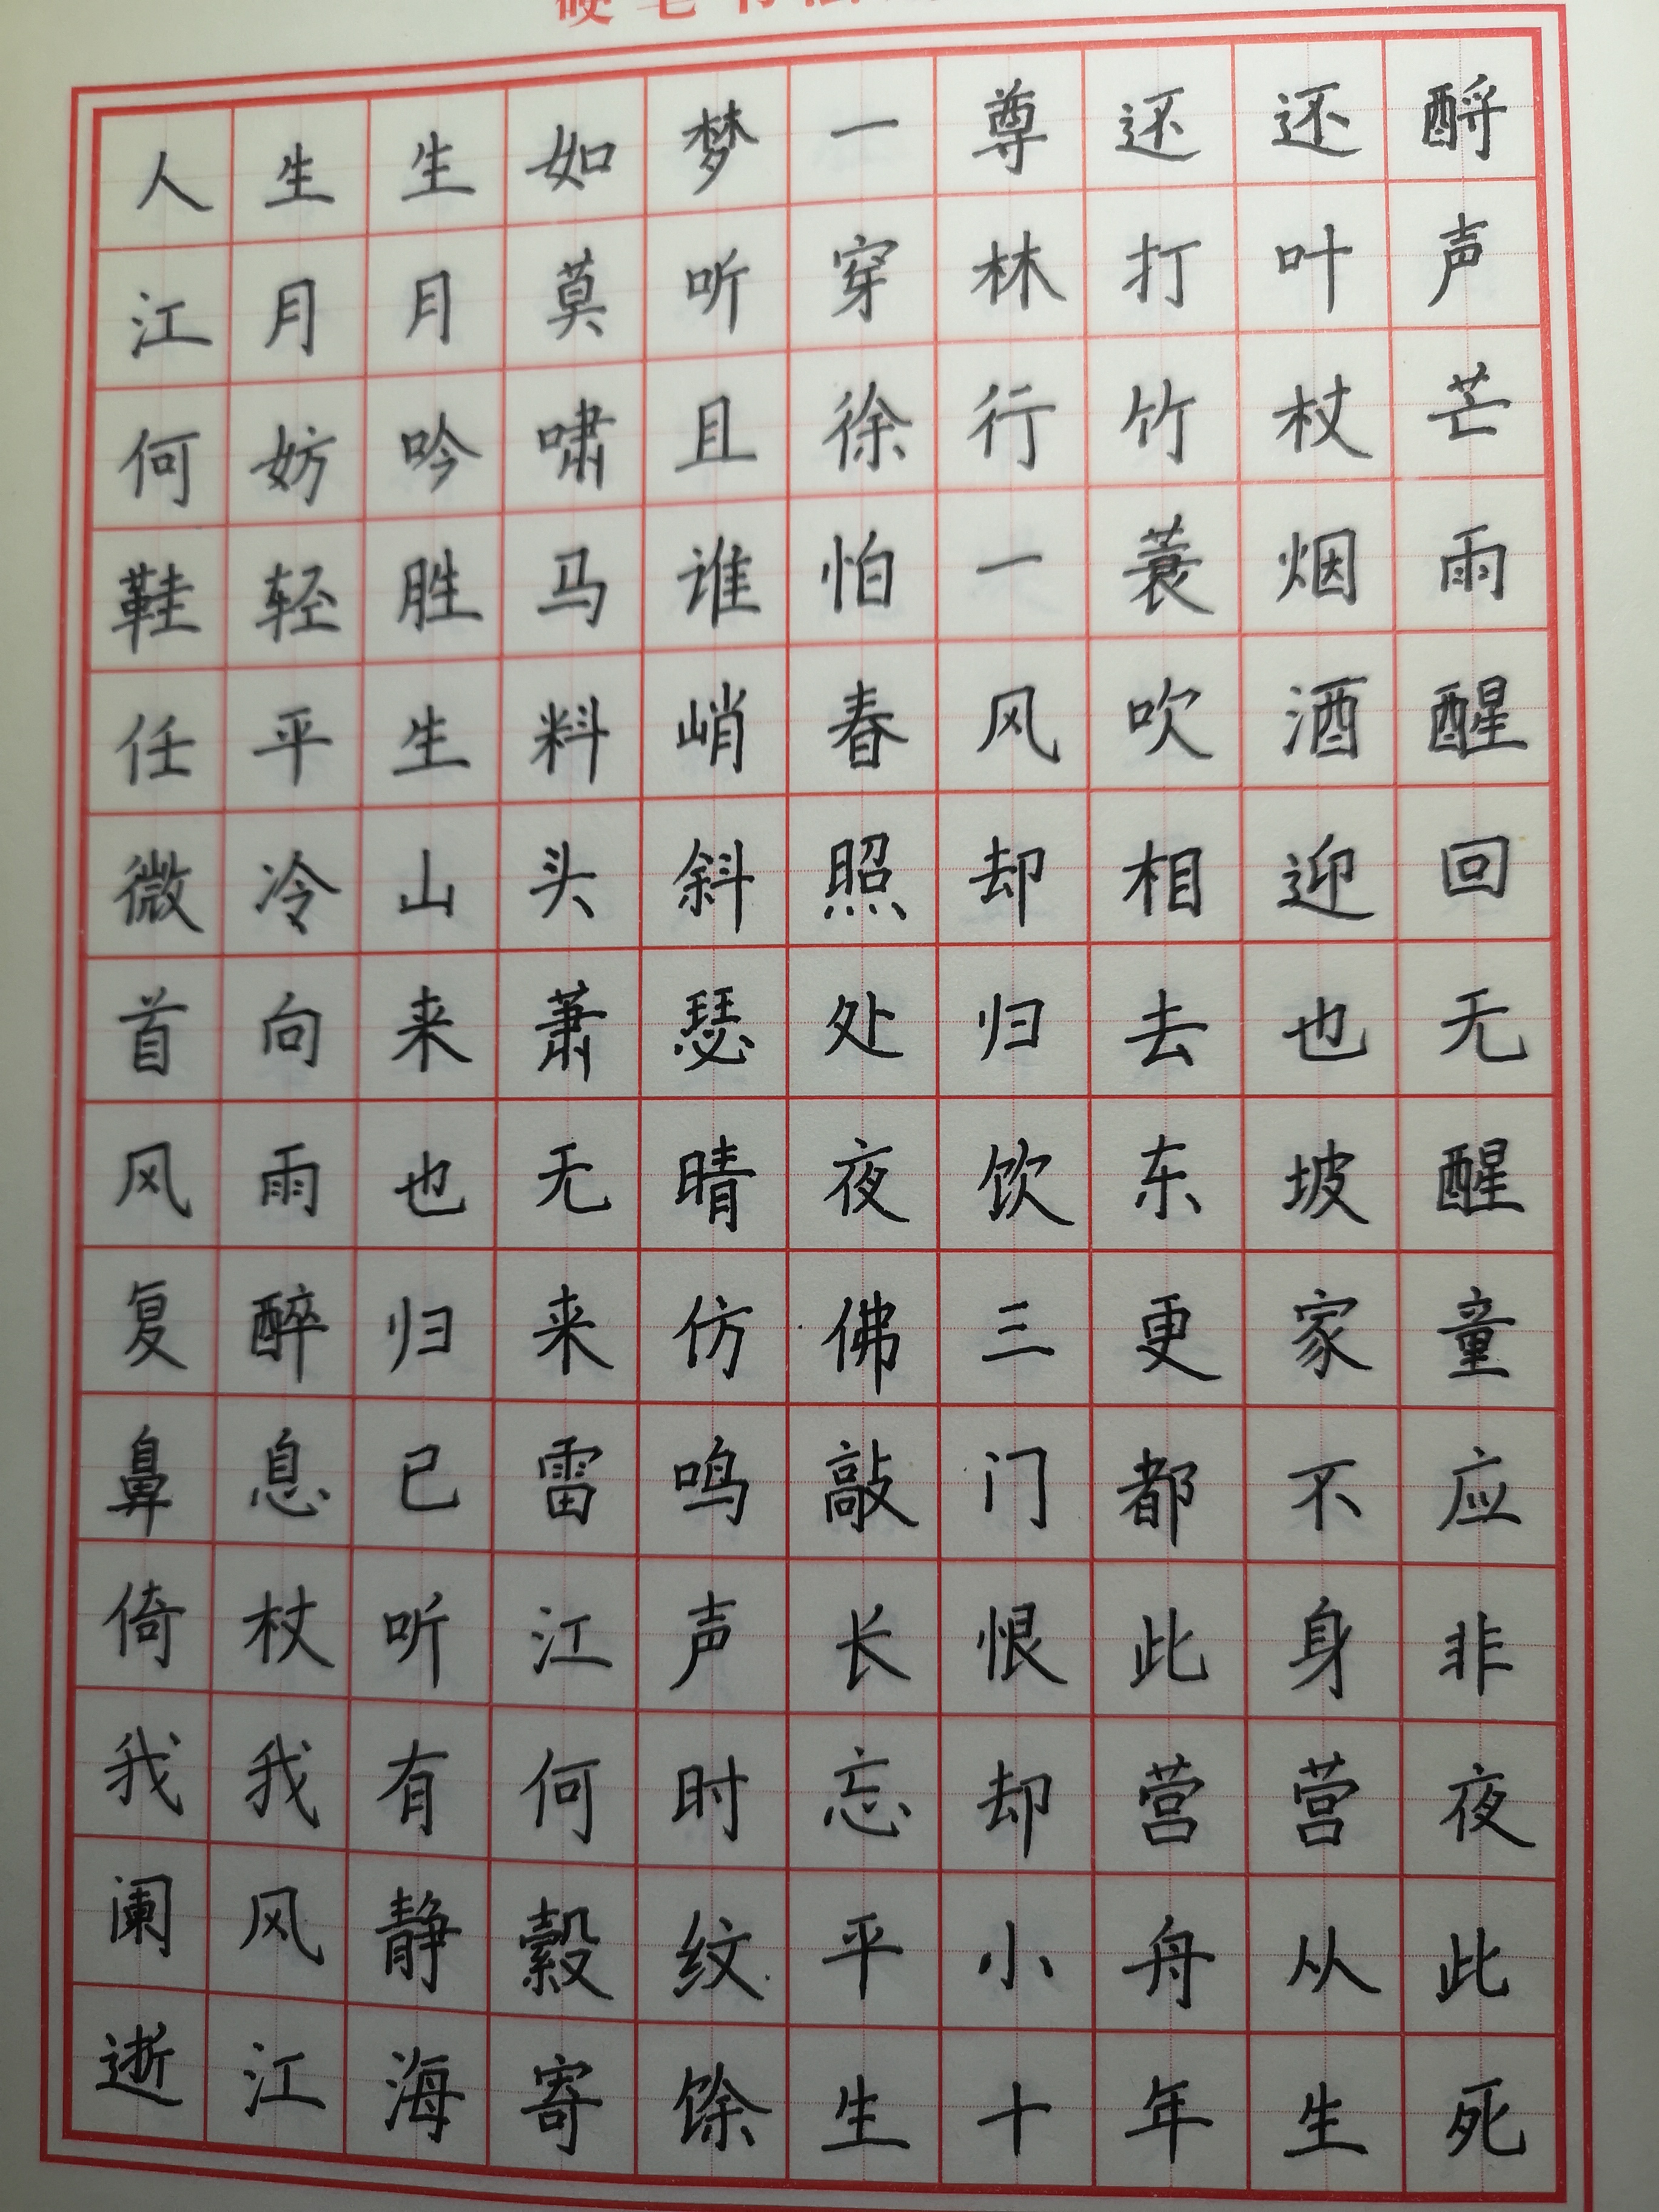 人生生如梦一尊还还酹
江月月莫听穿林打叶声
何妨吟啸且徐行竹杖芒
鞋轻胜马谁怕一蓑烟雨
任平生料峭春风吹酒醒
微冷山头斜照却相迎回
首向来萧瑟处归去也无
风雨也无晴夜饮东坡醒
复醉归来仿佛三更家童
鼻息已雷鸣敲门都不应
倚杖听江声长恨此身非
我我有何时忘却营营夜
阑风静縠纹平小舟从此
逝江海寄馀生十年生死